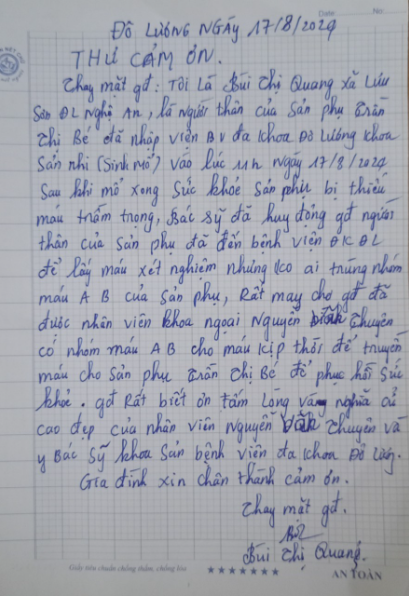 Date No
ĐÔ LƯƠNG NGÀY 17/8/2024
THƯ CẢM ƠN.
Thay mặt gđ: Tôi là Bùi Thị Quang xã Lưu
Sơn ĐL Nghệ An, là người thân của Sản phụ Trần
Thị Bé đã nhập viện BV đa khoa Đô Lương khoa
Sản nhi (Sinh mổ) vào lúc 11h ngày 17/8/2024
Sau khi mổ xong sức khỏe sản phụ bị thiếu
máu trầm trọng, Bác sỹ đã huy động gđ người
thân của sản phụ đã đến bệnh viện ĐKĐL
để lấy máu xét nghiệm nhưng ko ai trùng nhóm
máu AB của sản phụ, Rất may cho gđ đã
được nhân viên khoa ngoại Nguyễn Chuyên
có nhóm máu AB cho máu kịp thời để truyền
máu cho sản phụ Trần Thị Bé để phục hồi sức
khỏe. gđ Rất biết ơn tấm lòng vàng nghĩa cử
cao đẹp của nhân viên Nguyễn Chuyên và
y Bác Sỹ khoa Sản bệnh viện đa khoa Đô Lương.
Gia đình xin chân thành cảm ơn.
Thay mặt gđ.
Bùi Thị Quang.
Giấy tiêu chuẩn chống thấm, chống lóa ★★★★★★★ AN TOÀN